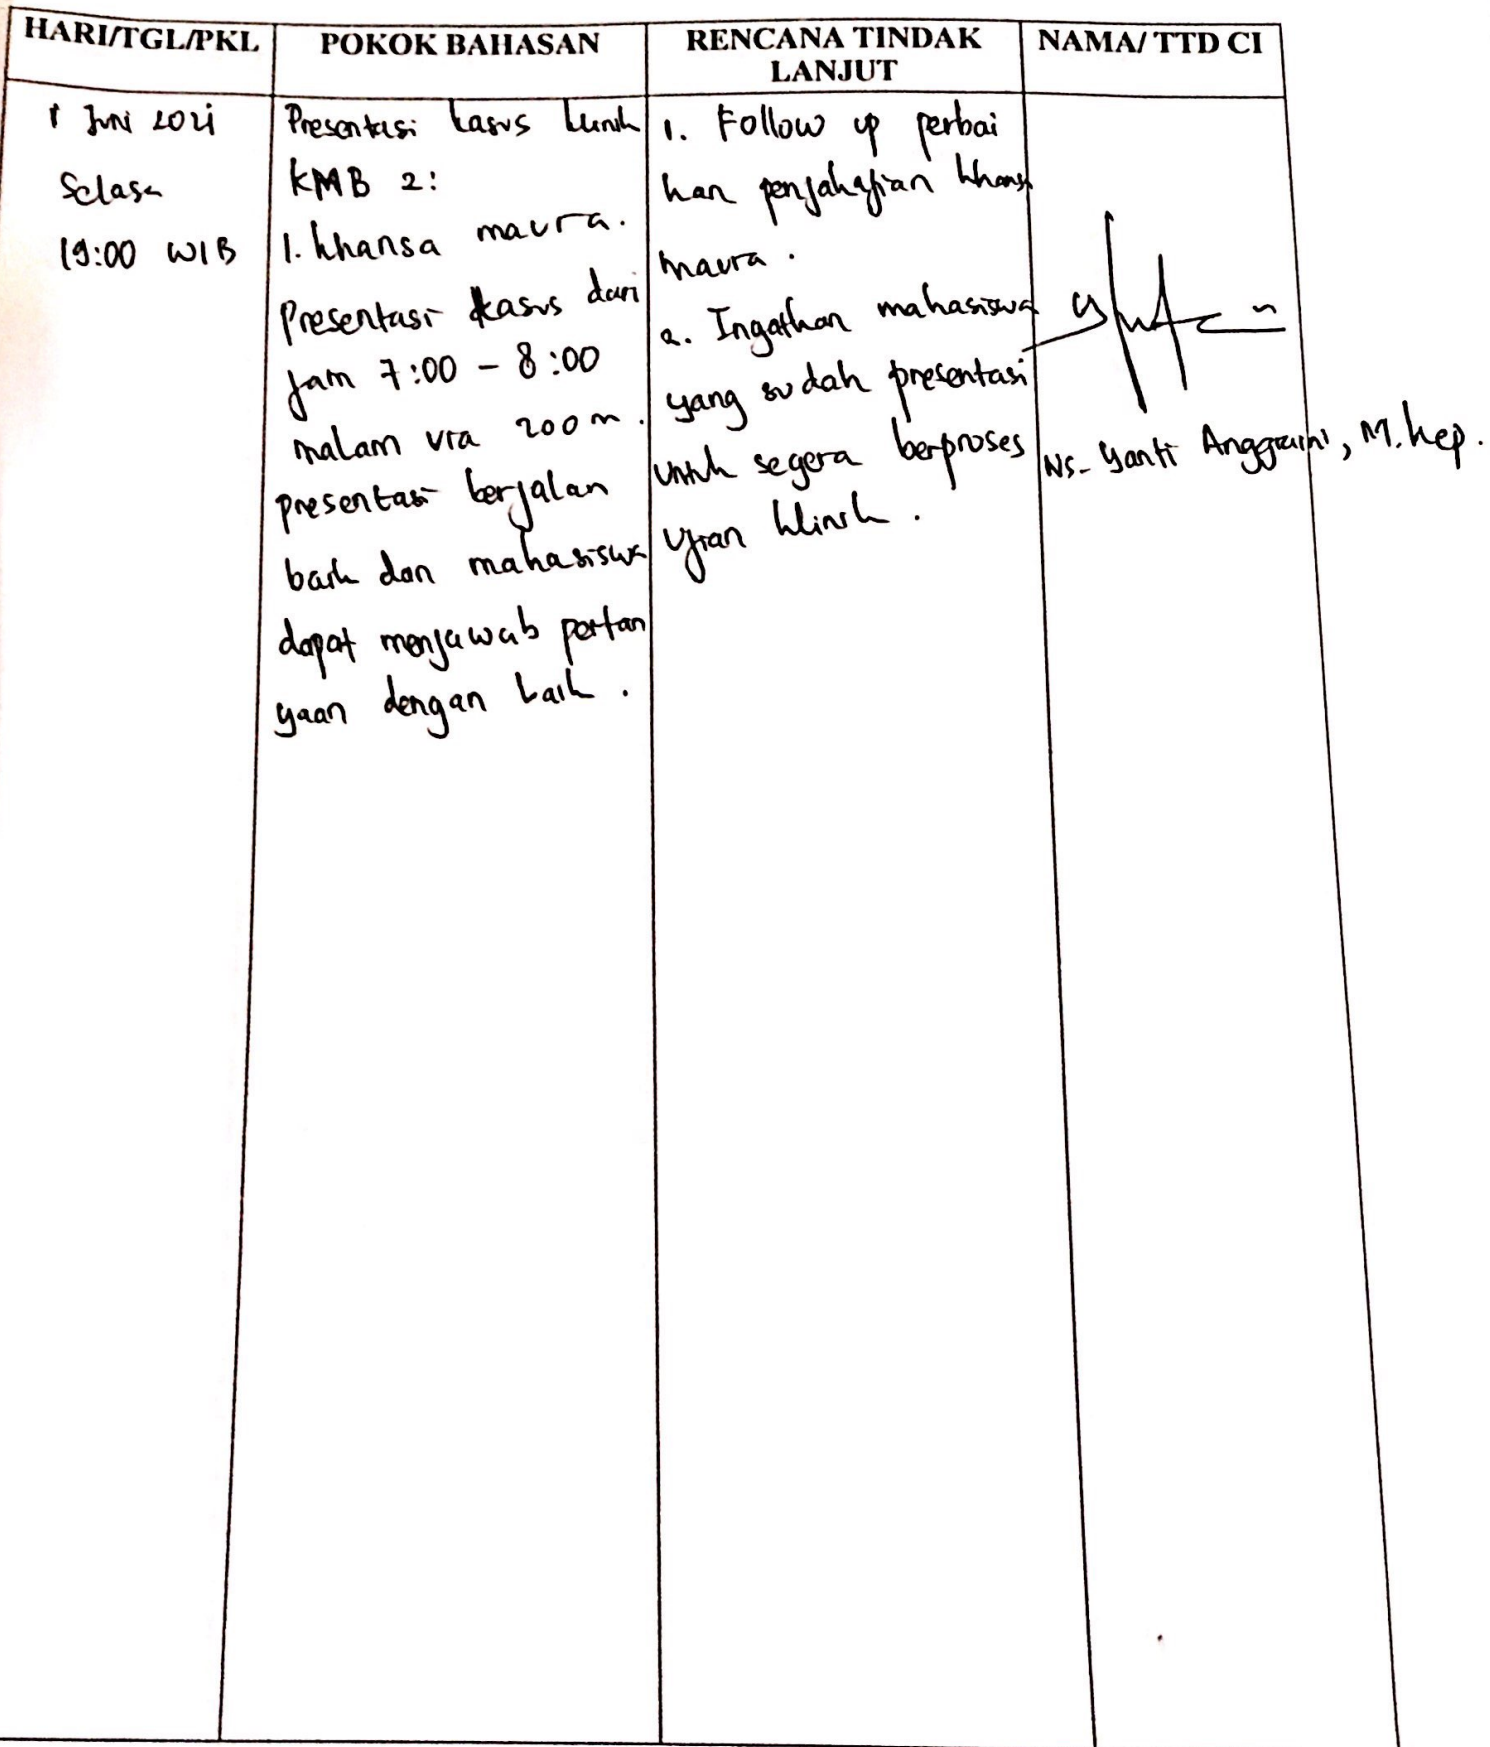 HARI/TGL/PKL
POKOK BAHASAN
RENCANA TINDAK
LANJUT
NAMA/ TTD CI
1 Juni 2021
Selasa
19:00 WIB
Presentasi kasus klinik
KMB 2:
1. Khansa maura.
Presentasi kasus dari
jam 7:00 - 8:00
malam via zoom.
presentasi berjalan
baik dan mahasiswa
dapat menjawab pertan
yaan dengan baik.
1. Follow up perbai
kan pengkajian khansa
maura.
2. Ingatkan mahasiswa
yang sudah presentasi
untuk segera berproses
ujian klinik.
Ns. Yanti Anggraini, M.Kep.